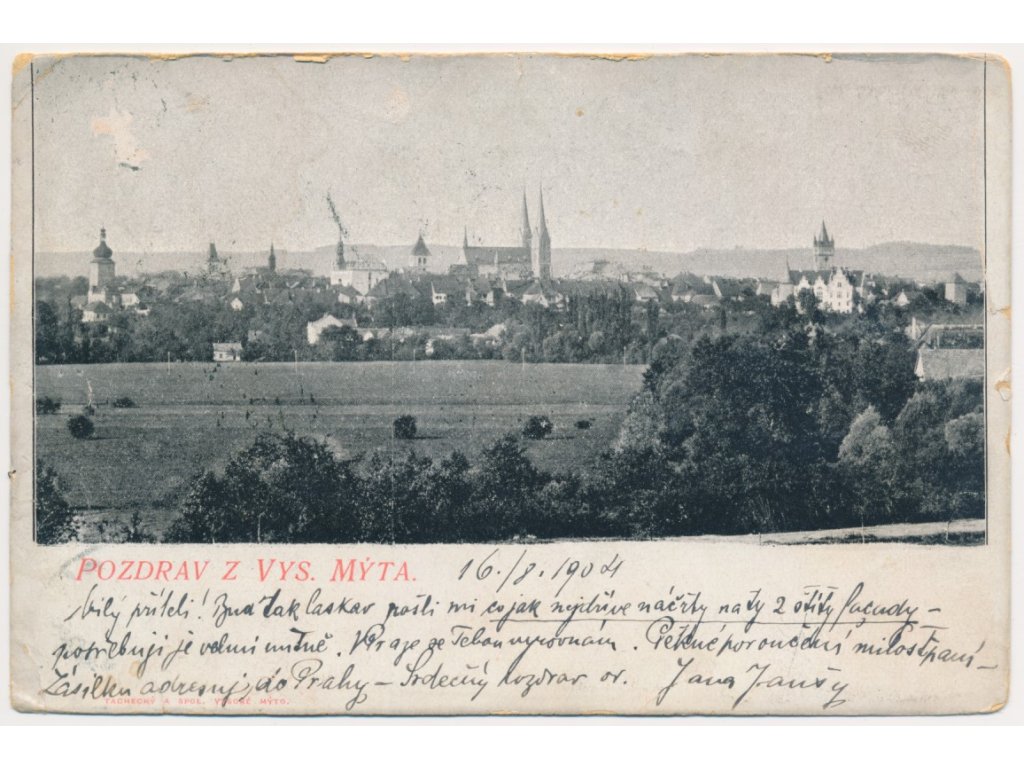 POZDRAV Z VYS. MÝTA. 16./8. 1904
Milý příteli! Buď tak laskav pošli mi co jak nejdříve náčrty na ty 2 štíty façady –
potřebuji je velmi nutně. V Praze se Tebou vyrovnám. Pěkné poroučení milostpaní –
Zásilku adresuj do Prahy – Srdečný pozdrav Jana
TACHECKÝ A SPOL. VYSOKÉ MÝTO.